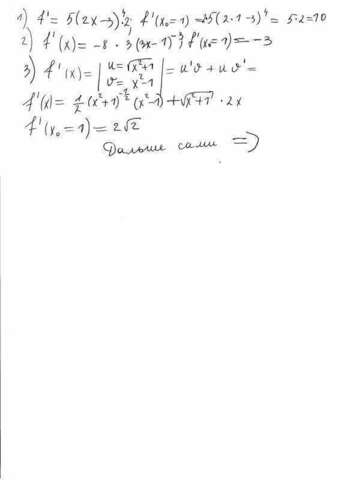 1) f' = 5(2x-3)⁴·2; f'(x₀=1) = 5(2·1-3)⁴ = 5·2=10
2) f'(x) = -8·3(3x-1)⁻³; f'(x₀=1) = -3
3) f'(x) = | u = √x²+1 v = x²-1 | = u'v + u v' =
f'(x) = 1/2 (x²+1)^-1/2 (x²-1) + √x²+1 · 2x
f'(x₀ = 1) = 2√2
Дальше сами =>